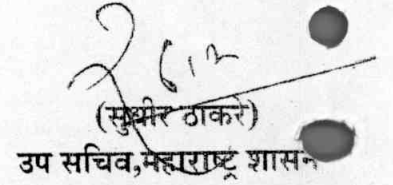 (सुधीर ठाकरे)
उप सचिव,महाराष्ट्र शासन